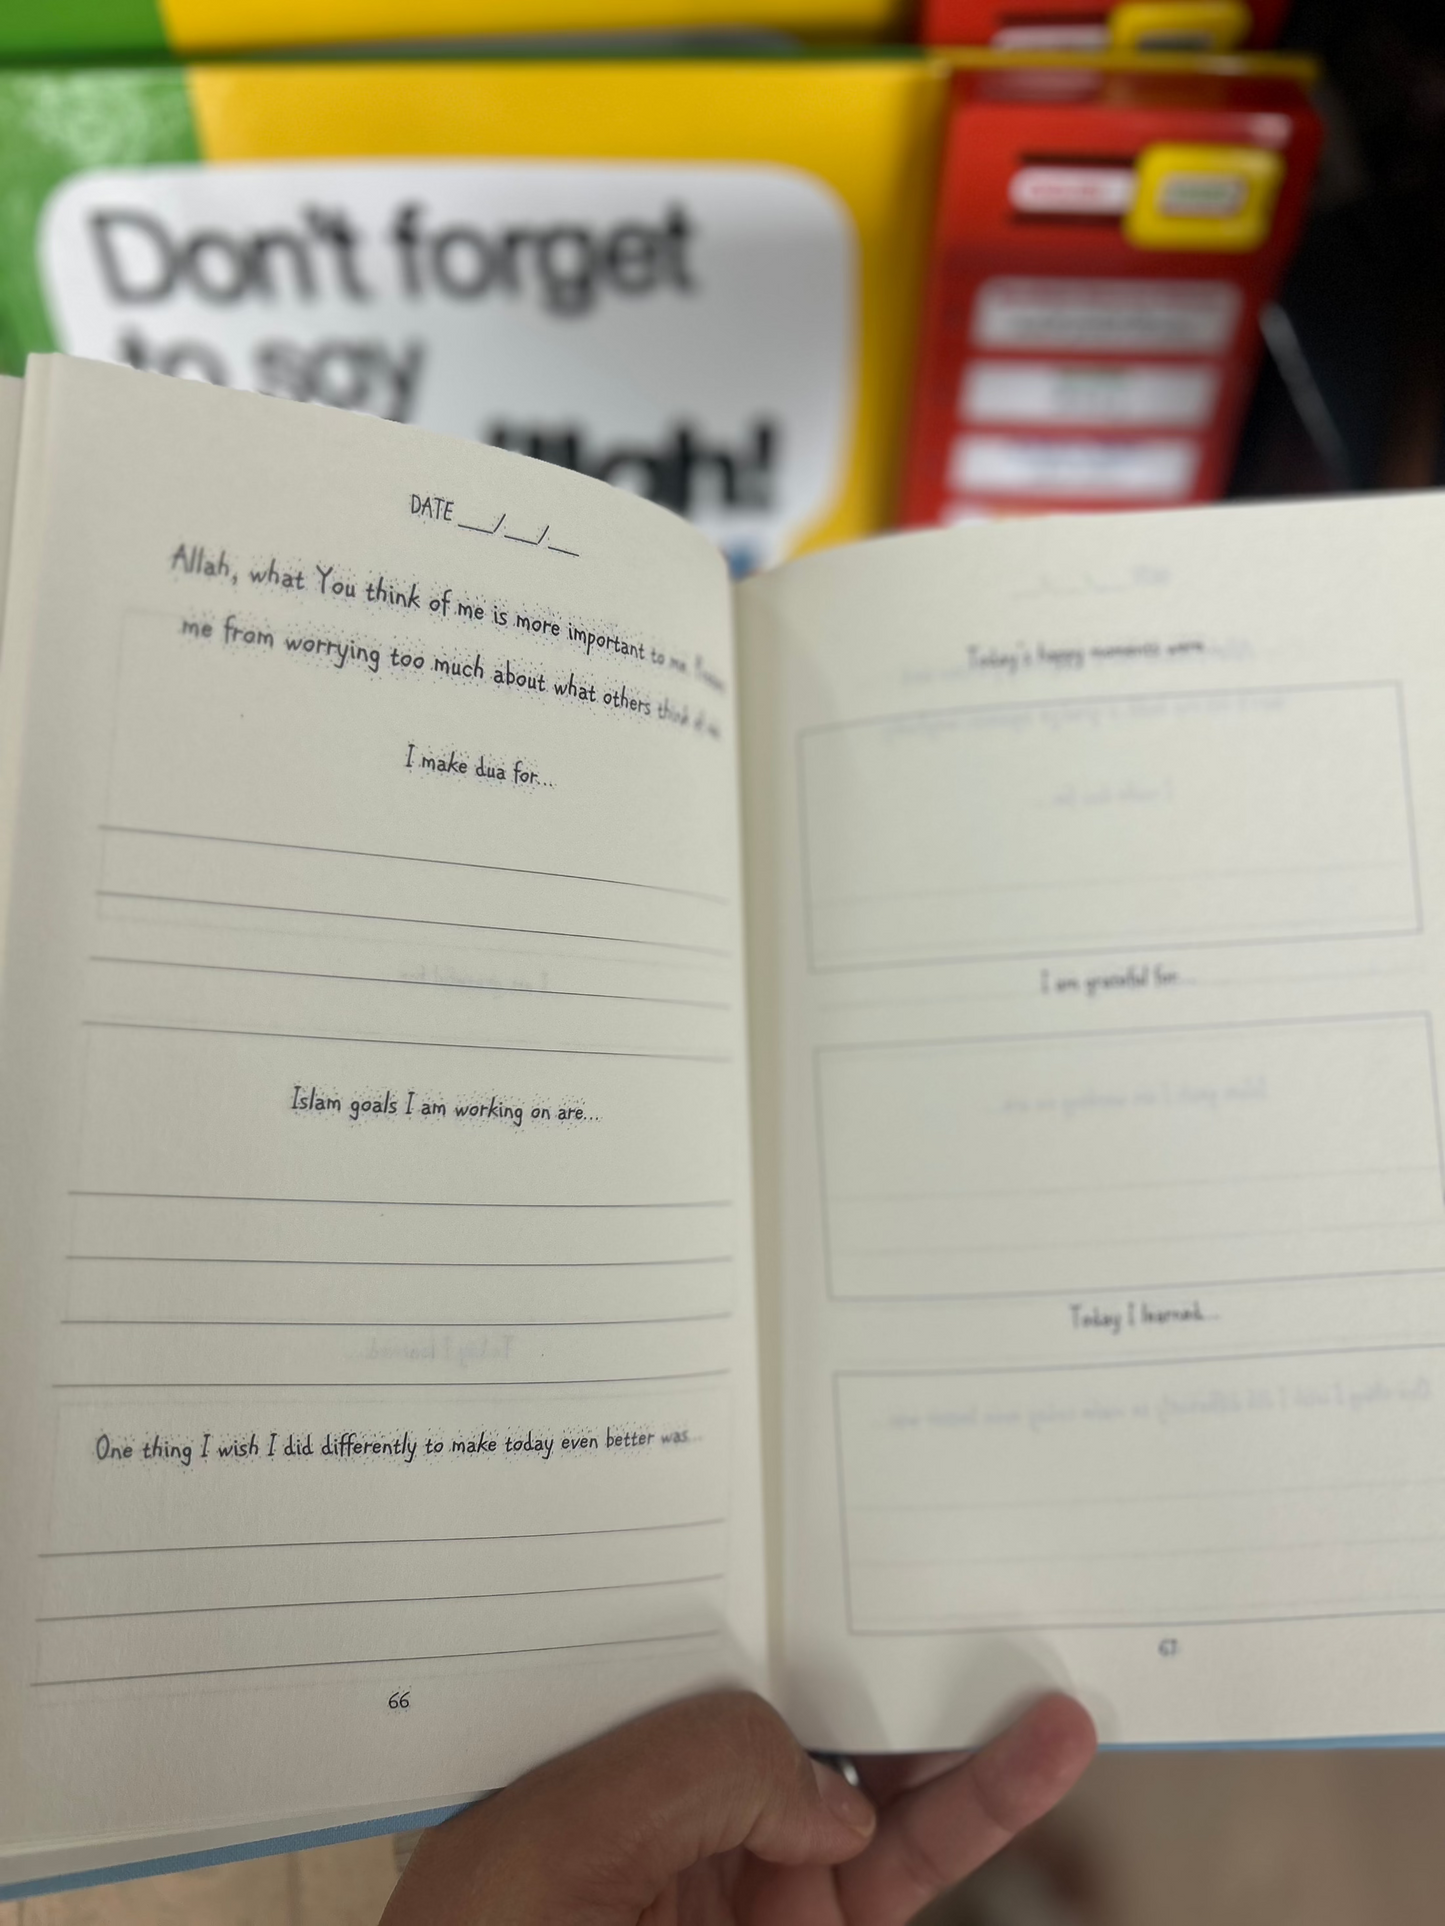 Don't forget
to say
DATE __/__/__
Allah, what You think of me is more important to me.
me from worrying too much about what others think of me
I make dua for...
Islam goals I am working on are...
One thing I wish I did differently to make today even better was...
66
Today's happy moments were
I am grateful for...
Today I learned...
67